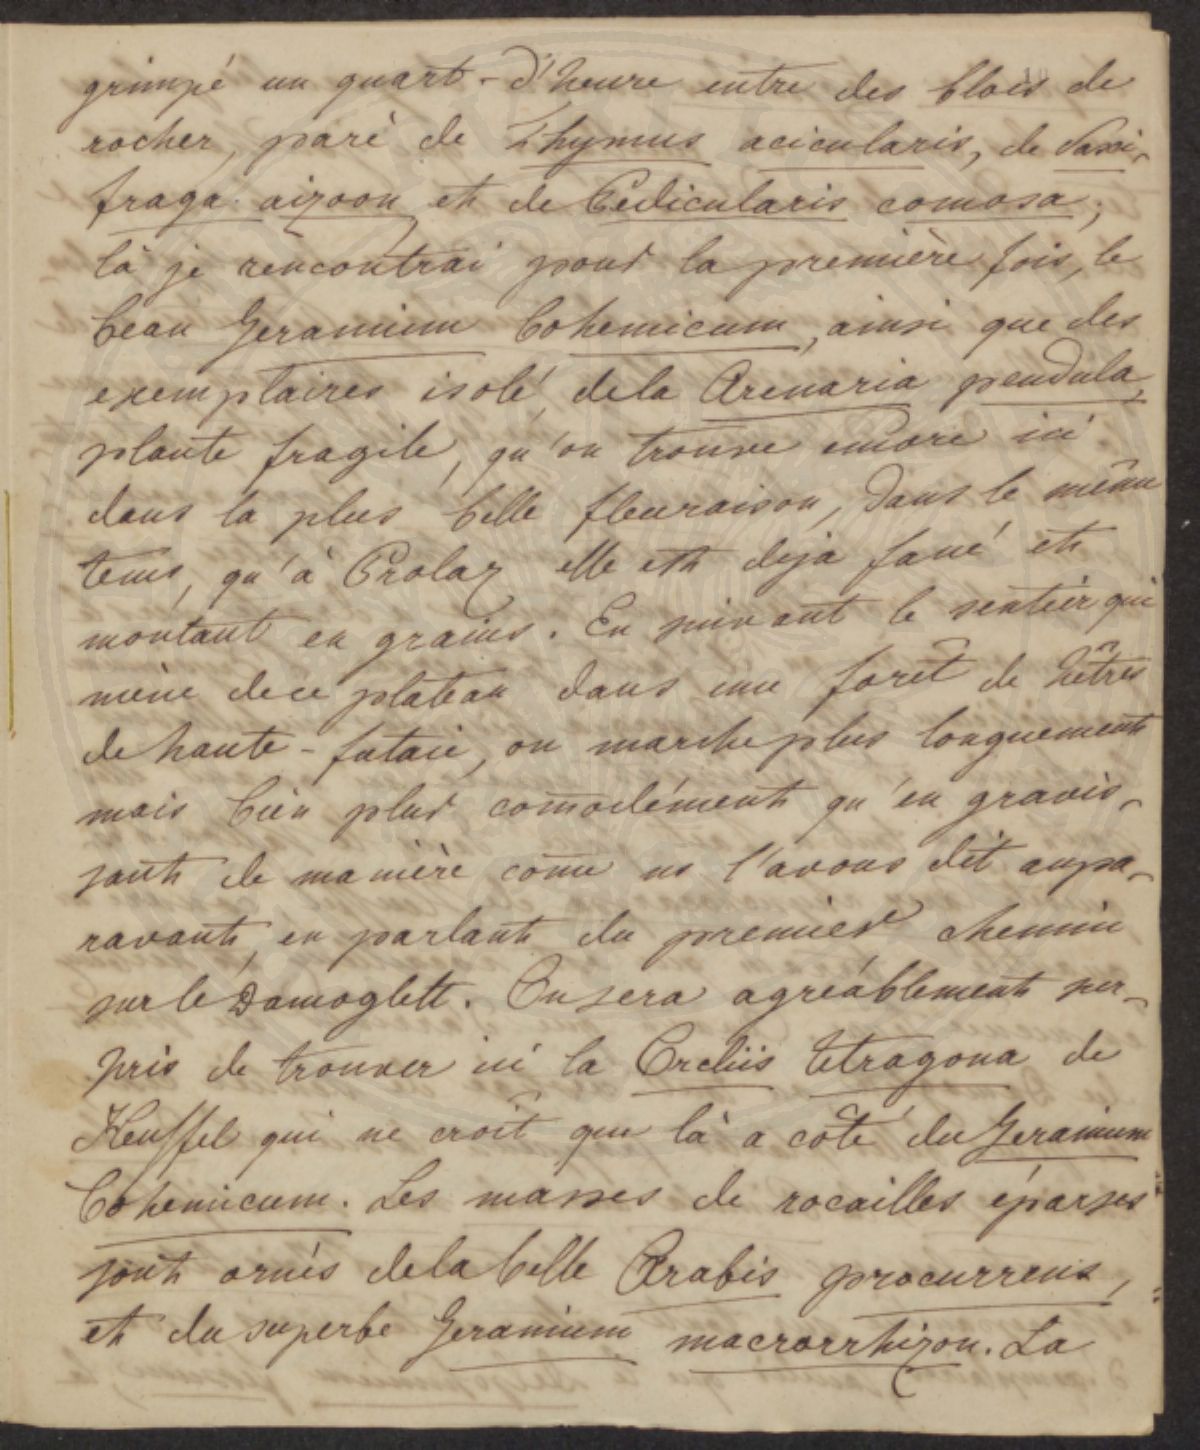 grimpé un quart-d'heure entre des blocs de
rocher, paré de Thymus acicularis, de Saxi-
fraga aizoon et de Pedicularis comosa;
là je rencontrai pour la première fois, le
beau Geranium bohemicum, ainsi que des
exemplaires isolé, de la Arenaria pendula,
plante fragile, qu'on trouve encore ici
dans la plus belle fleuraison, dans le même
tems, qu'à Prolaz elle est deja fané et
montant en grains. En suivant le sentier qui
mène de ce plateau dans une forêt de hêtres
de haute-futaie, on marche plus longuement
mais bien plus com̄odément qu'en gravis-
sant de manière com̄e ns l'avons dit aupa-
ravant, en parlant du premier chemin
sur le Domoglett. On sera agréablement sur-
pris de trouver ici la Orchis tetragona de
Heuffel qui ne croît que là a côté du Geranium
bohemicum. Les masses de rocailles éparses
sont ornés de la belle Arabis procurrens,
et du superbe Geranium macrorrhizon. La